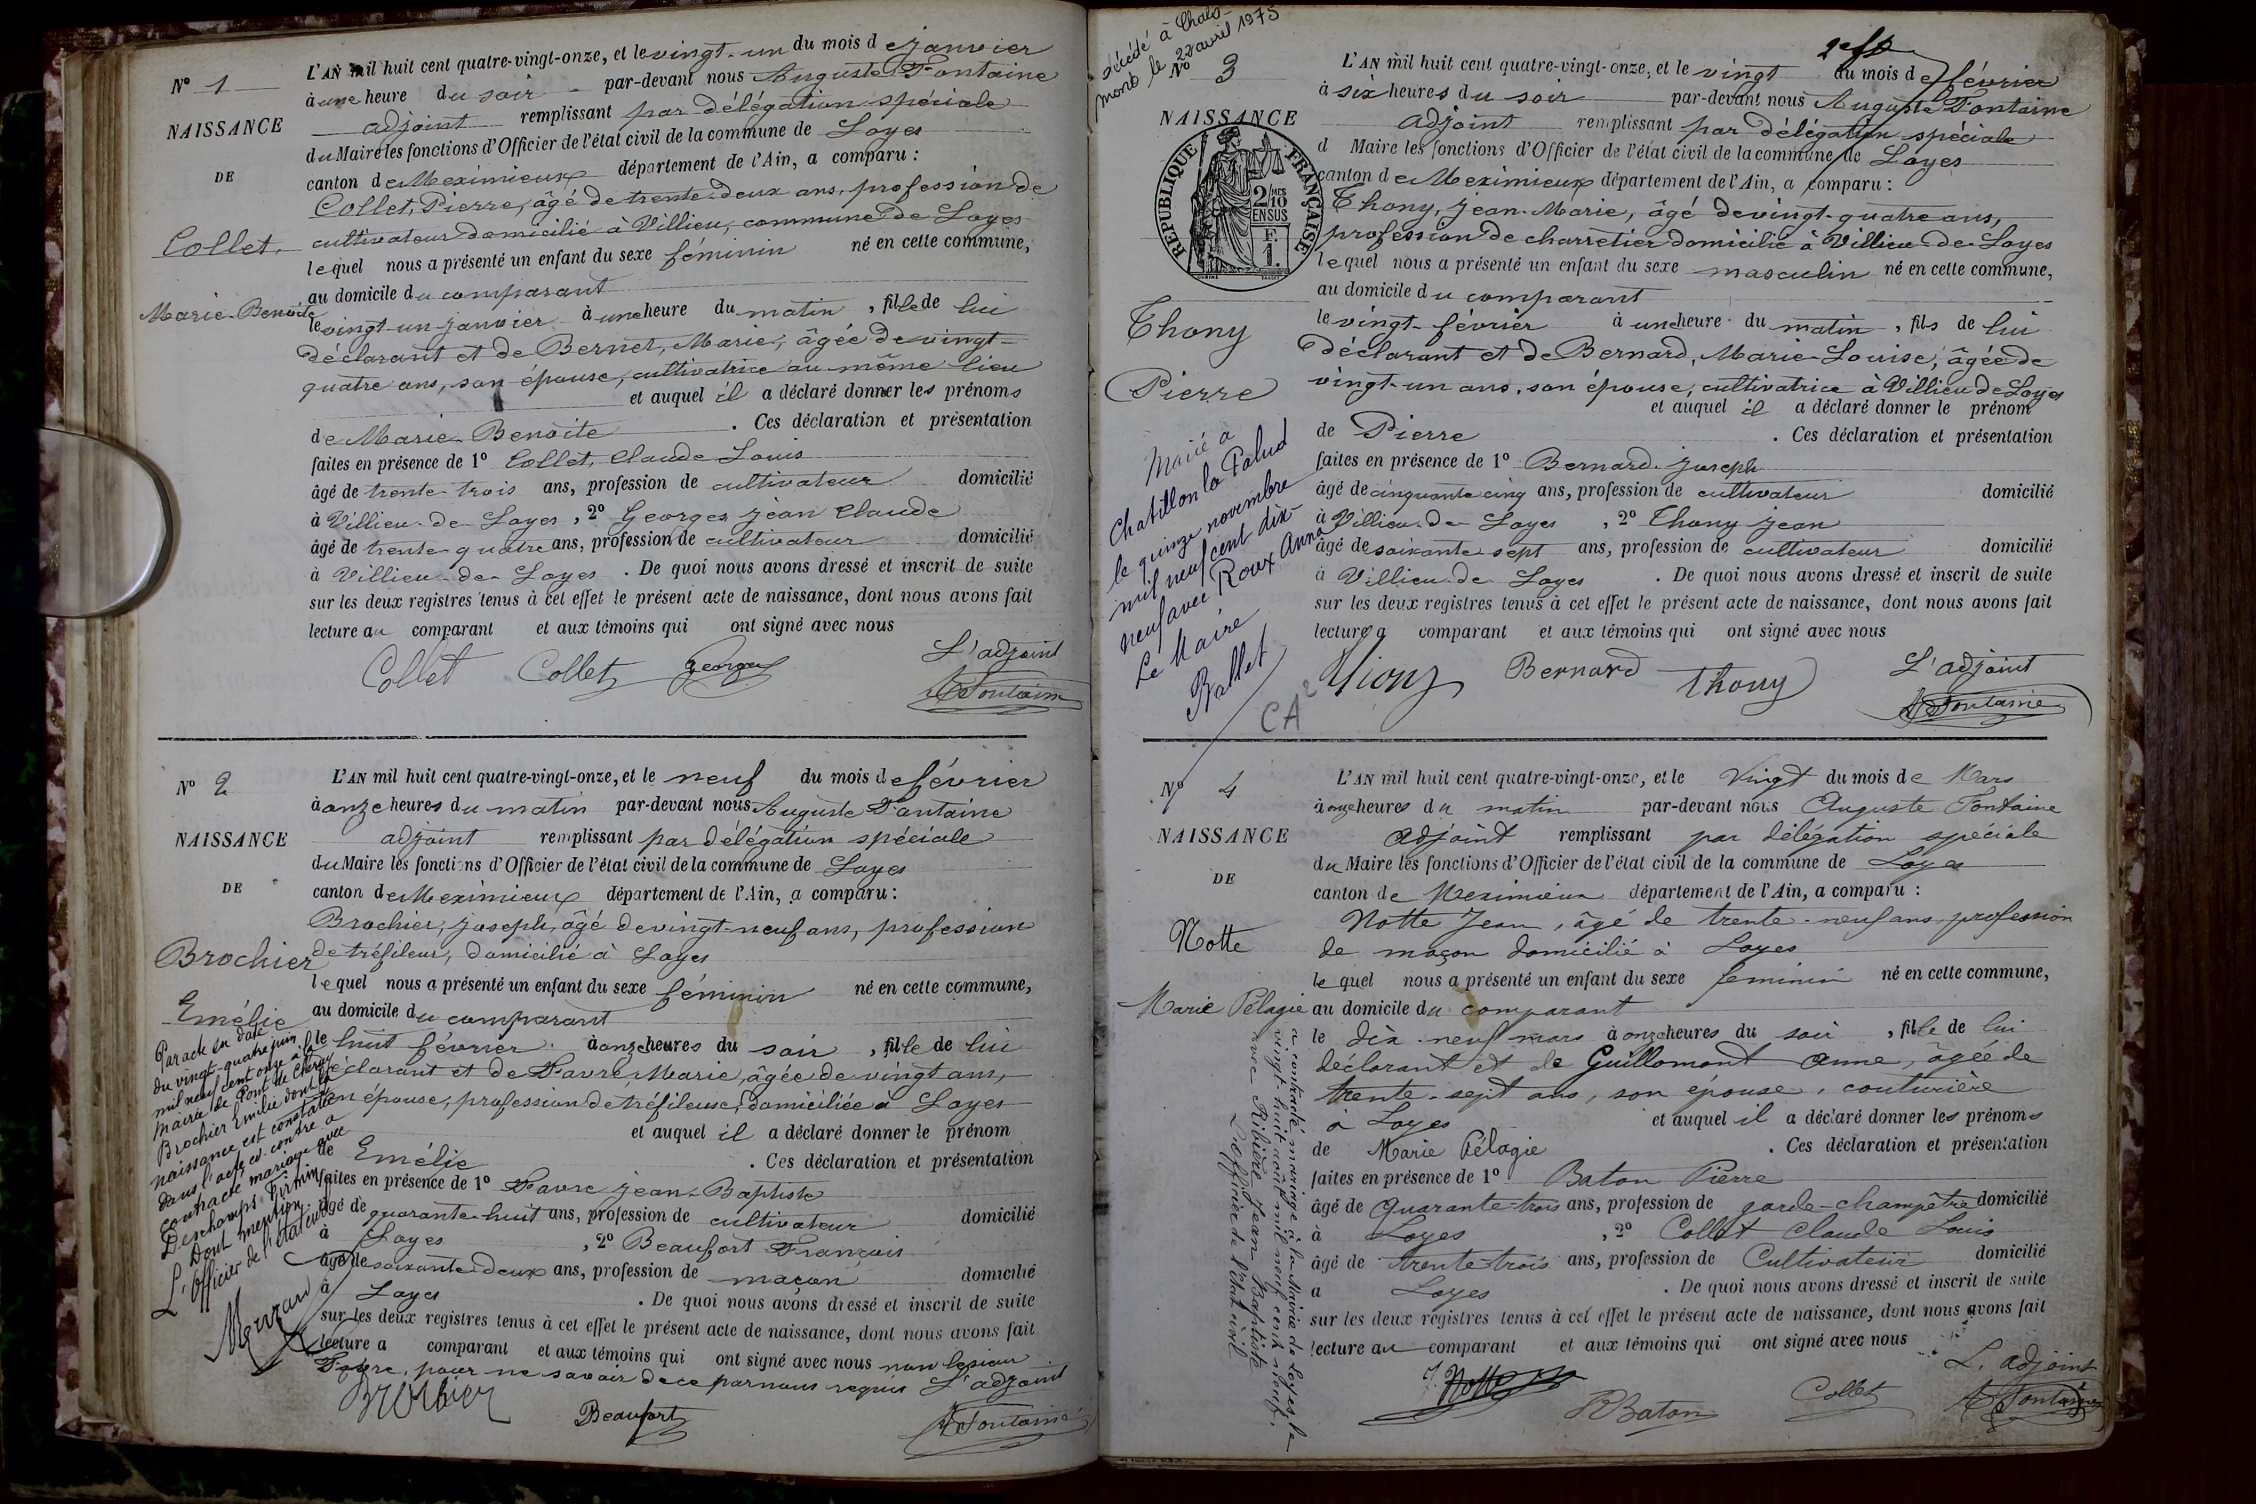 N° 1
NAISSANCE
DE
Collet,
Marie-Benoite
L'AN mil huit cent quatre-vingt-onze, et le vingt-un du mois de janvier
à une heure du soir par-devant nous Auguste Fontaine
adjoint remplissant par délégation spéciale
du Maire les fonctions d'Officier de l'état civil de la commune de Loyes
canton de Meximieux département de l'Ain, a comparu :
Collet, Pierre, âgé de trente-deux ans, profession de
cultivateur domicilié à Villieu, commune de Loyes
lequel nous a présenté un enfant du sexe féminin né en cette commune,
au domicile du comparant
le vingt-un janvier à une heure du matin, fille de lui
déclarant et de Bernet, Marie, âgée de vingt-
quatre ans, son épouse, cultivatrice au même lieu
et auquel il a déclaré donner les prénoms
de Marie-Benoite . Ces déclaration et présentation
faites en présence de 1° Collet, Claude Louis
âgé de trente-trois ans, profession de cultivateur domicilié
à Villieu-de-Loyes, 2° Georges Jean Claude
âgé de trente-quatre ans, profession de cultivateur domicilié
à Villieu-de-Loyes . De quoi nous avons dressé et inscrit de suite
sur les deux registres tenus à cet effet le présent acte de naissance, dont nous avons fait
lecture au comparant et aux témoins qui ont signé avec nous
Collet Collet Georges L'adjoint
A Fontaine
N° 2
NAISSANCE
DE
Brochier
Emélie
Par acte en date
du vingt-quatre juin
mil neuf cent onze à la
mairie de Pont de Chéruy
Brochier Emélie dont la
naissance est constatée
dans l'acte ci-contre a
contracté mariage avec
Deschamps Firmin
Dont mention
L'Officier de l'état civil
L'AN mil huit cent quatre-vingt-onze, et le neuf du mois de février
à onze heures du matin par-devant nous Auguste Fontaine
adjoint remplissant par délégation spéciale
du Maire les fonctions d'Officier de l'état civil de la commune de Loyes
canton de Meximieux département de l'Ain, a comparu :
Brochier, Joseph, âgé de vingt-neuf ans, profession
de tréfileur, domicilié à Loyes
lequel nous a présenté un enfant du sexe féminin né en cette commune,
au domicile du comparant
le huit février à onze heures du soir, fille de lui
déclarant et de Favre, Marie, âgée de vingt ans,
son épouse, profession de tréfileuse, domiciliée à Loyes
et auquel il a déclaré donner le prénom
de Emélie . Ces déclaration et présentation
faites en présence de 1° Favre Jean-Baptiste
âgé de quarante-huit ans, profession de cultivateur domicilié
à Loyes, 2° Beaufort François
âgé de soixante-deux ans, profession de maçon domicilié
à Loyes . De quoi nous avons dressé et inscrit de suite
sur les deux registres tenus à cet effet le présent acte de naissance, dont nous avons fait
lecture a comparant et aux témoins qui ont signé avec nous non le sieur
Favre, pour ne savoir de ce par nous requis L'adjoint
Brochier Beaufort A Fontaine
décédé à Chala-
mont le 22 avril 1975
N° 3
NAISSANCE
RÉPUBLIQUE FRANÇAISE
2/10 MES
EN SUS
F.
1.
Thony
Pierre
Marié à
Chatillon la Palud
le quinze novembre
mil neuf cent dix-
neuf avec Roux Anna
Le Maire
Ballet
CA
L'AN mil huit cent quatre-vingt-onze, et le vingt du mois de février
à six heures du soir par-devant nous Auguste Fontaine
adjoint remplissant par délégation spéciale
d Maire les fonctions d'Officier de l'état civil de la commune de Loyes
canton de Meximieux département de l'Ain, a comparu :
Thony, Jean-Marie, âgé de vingt-quatre ans,
profession de charretier domicilié à Villieu-de-Loyes
lequel nous a présenté un enfant du sexe masculin né en cette commune,
au domicile du comparant
le vingt-février à une heure du matin, fils de lui
déclarant et de Bernard, Marie-Louise, âgée de
vingt-un ans, son épouse, cultivatrice à Villieu de Loyes
et auquel il a déclaré donner le prénom
de Pierre . Ces déclaration et présentation
faites en présence de 1° Bernard Joseph
âgé de cinquante cinq ans, profession de cultivateur domicilié
à Villieu-de-Loyes, 2° Thony Jean
âgé de soixante sept ans, profession de cultivateur domicilié
à Villieu-de-Loyes . De quoi nous avons dressé et inscrit de suite
sur les deux registres tenus à cet effet le présent acte de naissance, dont nous avons fait
lecture a comparant et aux témoins qui ont signé avec nous
Bernard Thony L'adjoint
A Fontaine
N° 4
NAISSANCE
DE
Notte
Marie Pélagie
a contracté mariage à la Mairie de Loyes, le
vingt huit août mil neuf cent neuf,
avec Ribière Jean Baptiste
L'officier de l'état civil
L'AN mil huit cent quatre-vingt-onze, et le Vingt du mois de Mars
à onze heures du matin par-devant nous Auguste Fontaine
adjoint remplissant par délégation spéciale
du Maire les fonctions d'Officier de l'état civil de la commune de Loyes
canton de Meximieux département de l'Ain, a comparu :
Notte Jean, âgé de trente-neuf ans, profession
de maçon domicilié à Loyes
lequel nous a présenté un enfant du sexe féminin né en cette commune,
au domicile du comparant
le dix-neuf mars à onze heures du soir, fille de lui
déclarant et de Guillomont Anne, âgée de
trente-sept ans, son épouse, couturière
à Loyes et auquel il a déclaré donner les prénoms
de Marie Pélagie . Ces déclaration et présentation
faites en présence de 1° Baton Pierre
âgé de Quarante-trois ans, profession de garde-champêtre domicilié
à Loyes, 2° Collet Claude Louis
âgé de trente-trois ans, profession de Cultivateur domicilié
à Loyes . De quoi nous avons dressé et inscrit de suite
sur les deux registres tenus à cet effet le présent acte de naissance, dont nous avons fait
lecture au comparant et aux témoins qui ont signé avec nous
J. Notte P Baton Collet L'adjoint
A Fontaine